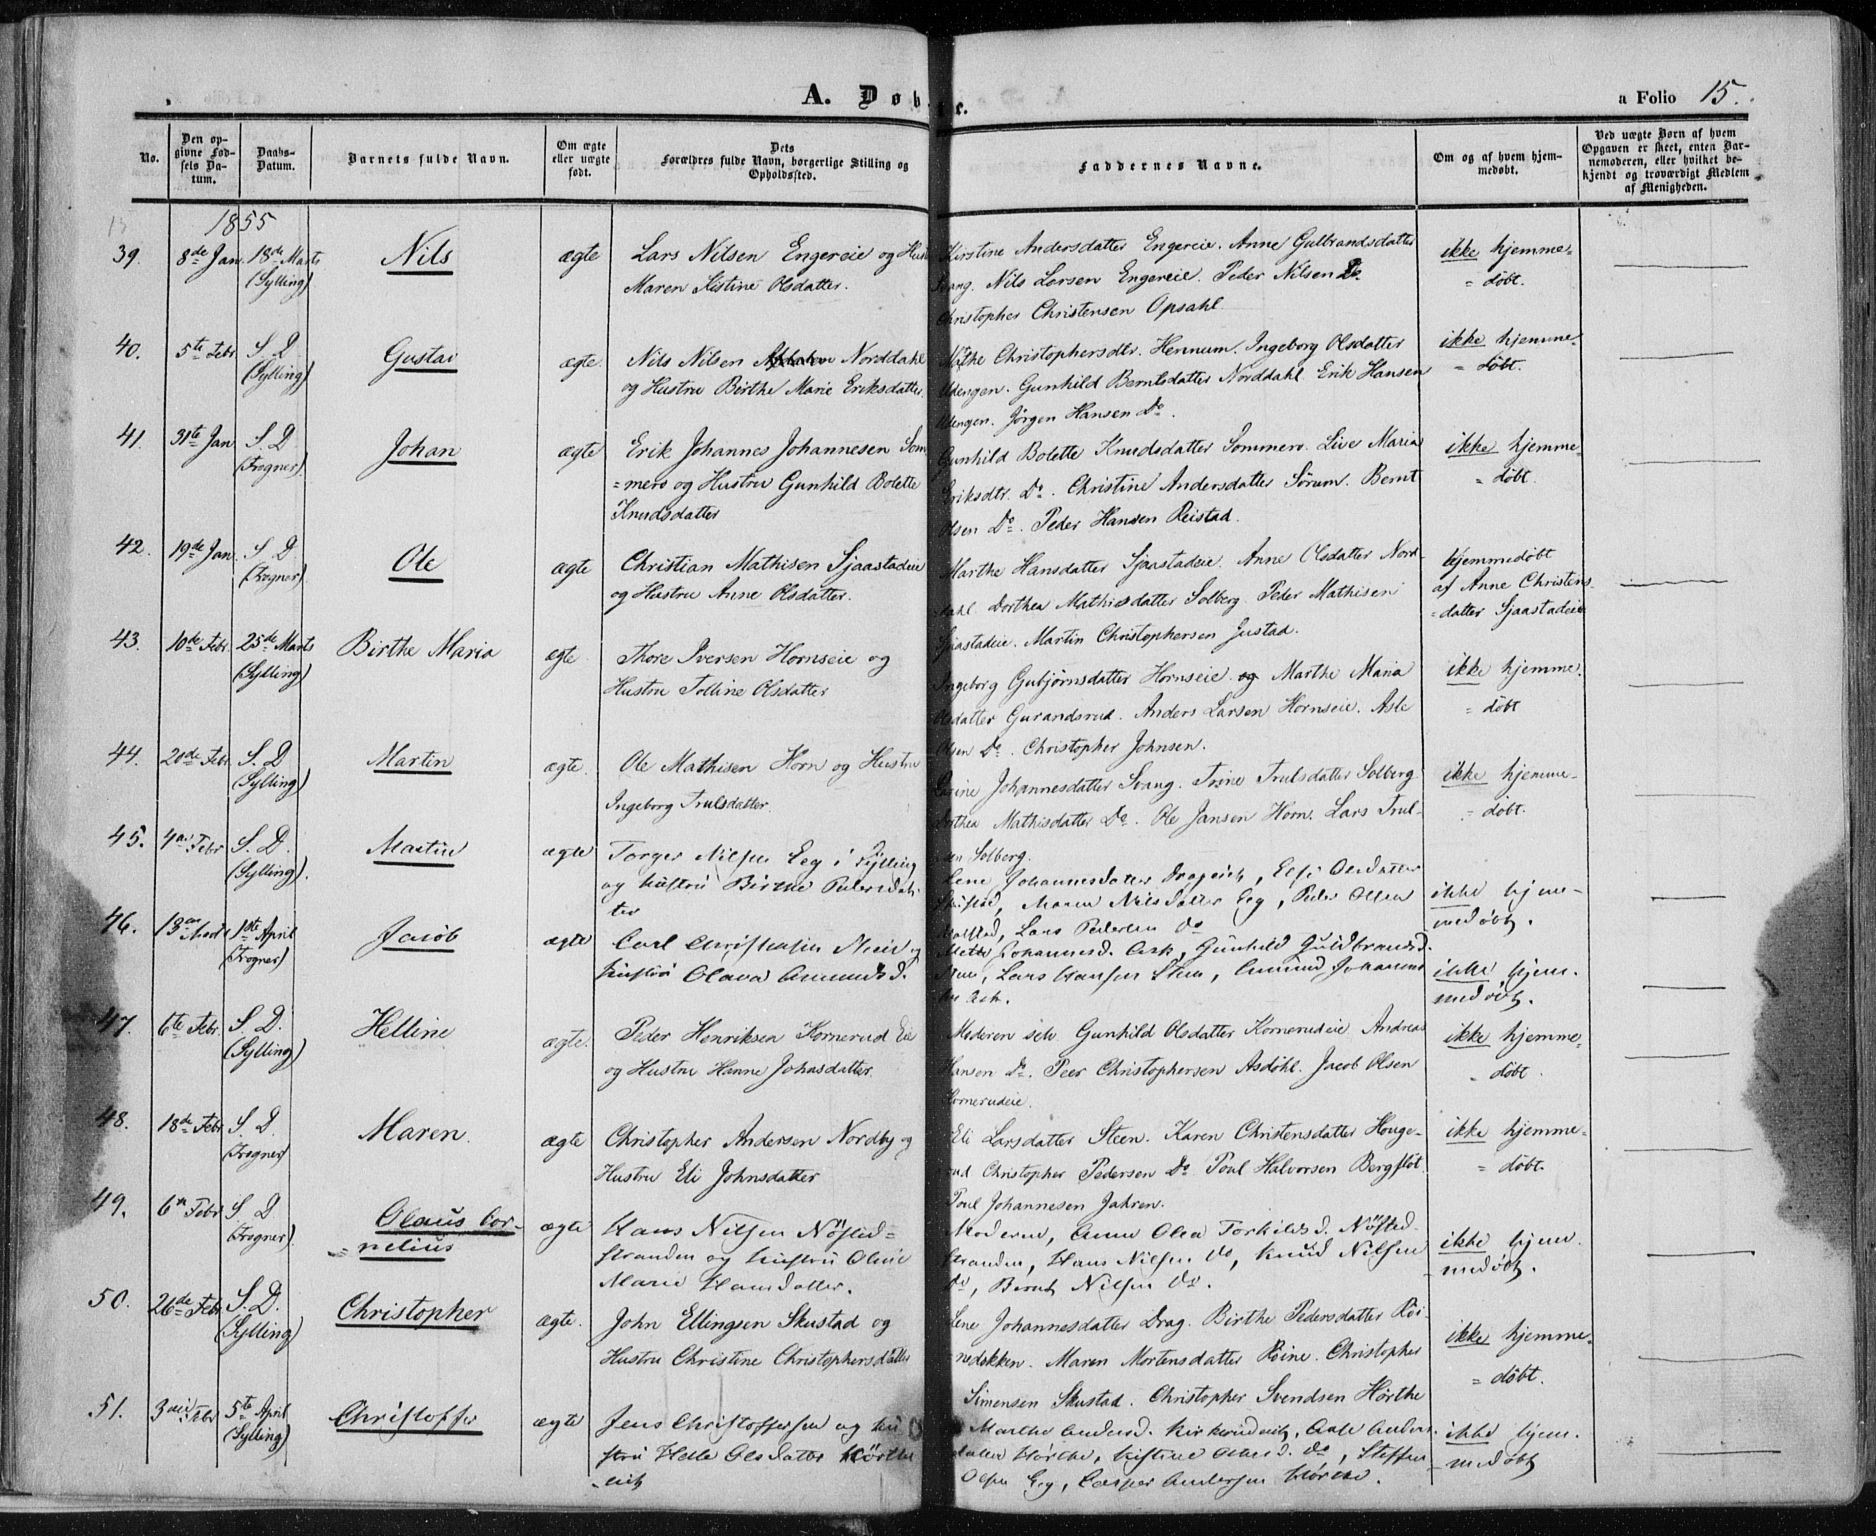 A. Døbte.
a Folio 15.
No.
Den op-
givne Fød-
sels Da-
tum.
Daabs-
Datum.
Barnets fulde Navn.
Om ægte
eller uægte
født.
Dets
Forældres fulde Navn, borgerlige Stilling og
Opholdssted.
Faddernes Navne.
Om og af hvem hjem-
medøbt.
Ved uægte Børn af hvem
Opgaven er skeet, enten Bar-
nemoderen, eller hvilket be-
kjendt og troværdigt Medlem
af Menigheden.
1855
39.
8de Jan.
18de Marts
(Sylling)
Nils
ægte
Lars Nilsen Engereie og Hust
Maren Kistine Olsdatter.
Kirstine Andersdatter Engereie. Anne Gulbrandsdatter
Svang. Nils Larsen Engereie. Peder Nilsen Do.
Christopher Christensen Opsahl.
ikke hjemme-
= døbt.
40.
5te Febr
S. D
(Sylling)
Gustav
ægte.
Nils Nilsen Norddahl
og Hustru Birthe Marie Eriksdatter.
Christophersdtr. Hennum. Ingeborg Olsdatter
Udengen. Gunhild Berntsdatter Norddahl. Erik Hansen
Udengen. Jørgen Hansen Do.
ikke hjemme-
= døbt.
41.
31te Jan.
S D
(Frogner).
Johan
ægte
Erik Johannes Johannesen Som
=mero og Hustru Gunhild Bolette
Knudsdatter
Gunhild Bolette Knudsdatter Sommero. Live Maria
Eriksdtr. Do. Christine Andersdatter Sörum. Bernt
Olsen Do. Peder Hansen Reistad.
ikke hjemme-
= døbt.
42.
19de Jan.
S D.
(Frogner).
Ole
ægte
Christian Mathisen Sjaastadeie
og Hustru Anne Olsdatter.
Marthe Hansdatter Sjaastadeie. Anne Olsdatter Nord-
dahl. Dorthea Mathisdatter Solberg. Peder Mathisen
Sjaastadeie. Martin Christophersen Justad.
hjemmedøbt
af Anne Christens-
=datter Sjaastadeie
43.
10de Febr.
25de Marts
(Sylling)
Birthe Maria
ægte.
Thore Iversen Hornseie og
Hustru Tolline Olsdatter
Ingeborg Gubjörnsdatter Hornseie og Marthe Maria
Olsdatter Gurandsrud. Anders Larsen Hornseie. Asle
Olsen Do. Christopher Johnsen.
ikke hjemme-
= døbt
44.
20de Febr.
S. D
(Sylling)
Martin
ægte.
Ole Mathisen Horn og Hustru
Ingeborg Trulsdatter.
Johannesdatter Svang. Trine Trulsdatter Solberg.
Dorthea Mathisdatter Do. Ole Jansen Horn. Lars Trul-
sen Solberg.
ikke hjemme-
= døbt.
45.
Febr
S. D.
(Sylling).
Martin
ægte
Torger Nilsen Eeg i Sylling
og hustru Birthe Pedersdat-
ter
Lene Johannesdatter Drageie, Elsi Olesdatter
Skustad, Maren Nilsdatter Eeg, Peder Olsen
Lars Pedersen Do
ikke hjem-
medøbt.
46.
13
1ste April
(Frogner)
Jacob
ægte
Carl Christiansen og
hustru Olava Amundsd.
Mette Johannesd. Ask, Gunhild Guldbrandsd.
Steen, Lars Hansen Steen, Amund Johannes
sen Ask.
ikke hjem-
medøbt.
47.
6te Febr.
S. D.
(Sylling)
Helline
ægte.
Peder Henriksen Kornerud Eie
og Hustru Hanne Johasdatter.
Moderen selv Gunhild Olsdatter Kornerudeie Andreas
Hansen Do. Peer Christophersen Asdöhl. Jacob Olsen
Kornerudeie.
ikke hjemme-
= døbt.
48.
18de Febr.
S. D.
(Frogner)
Maren.
ægte
Christopher Andersen Nordby og
Hustru Eli Johnsdatter
Eli Larsdatter Steen. Karen Christensdatter Houge-
rud Christopher Pedersen Do Poul Halvorsen Bergflöt
Poul Johannesen Jahren.
ikke hjemme-
= døbt.
49.
6te Febr
S. D
(Frogner).
Olaus Cor-
=nelius
ægte
Hans Nilsen Nøsted=
stranden og hustru Oline
Marie Hansdatter.
Moderen, Anne Olea Torkildsd. Nøsted-
stranden, Hans Nilsen Do, Knud Nilsen
Do, Bernt Nilsen Do.
ikke hjem-
medøbt.
50.
26de Febr
S. D.
(Sylling)
Christopher
ægte.
John Ellingsen Skustad og
Hustru Christine Christophersdatter
Lene Johannesdatter Drag. Birthe Pedersdatter Röi-
nedokken. Maren Mortensdatter Röine. Christopher
Simensen Skustad. Christopher Svendsen Hörthe
ikke hjemme-
= døbt.
51.
3die Febr
5te April
(Sylling)
Christoffer
ægte
Jens Christoffersen og hu
stru Helle Olsdatter Hörthe
=eie
Marthe Andersd. Kirkerudeie, Anders-
datter Hörthe, Kistine Do, Steffen
Olsen Eeg, Casper Andersen Hörthe.
ikke hjem-
=medøbt